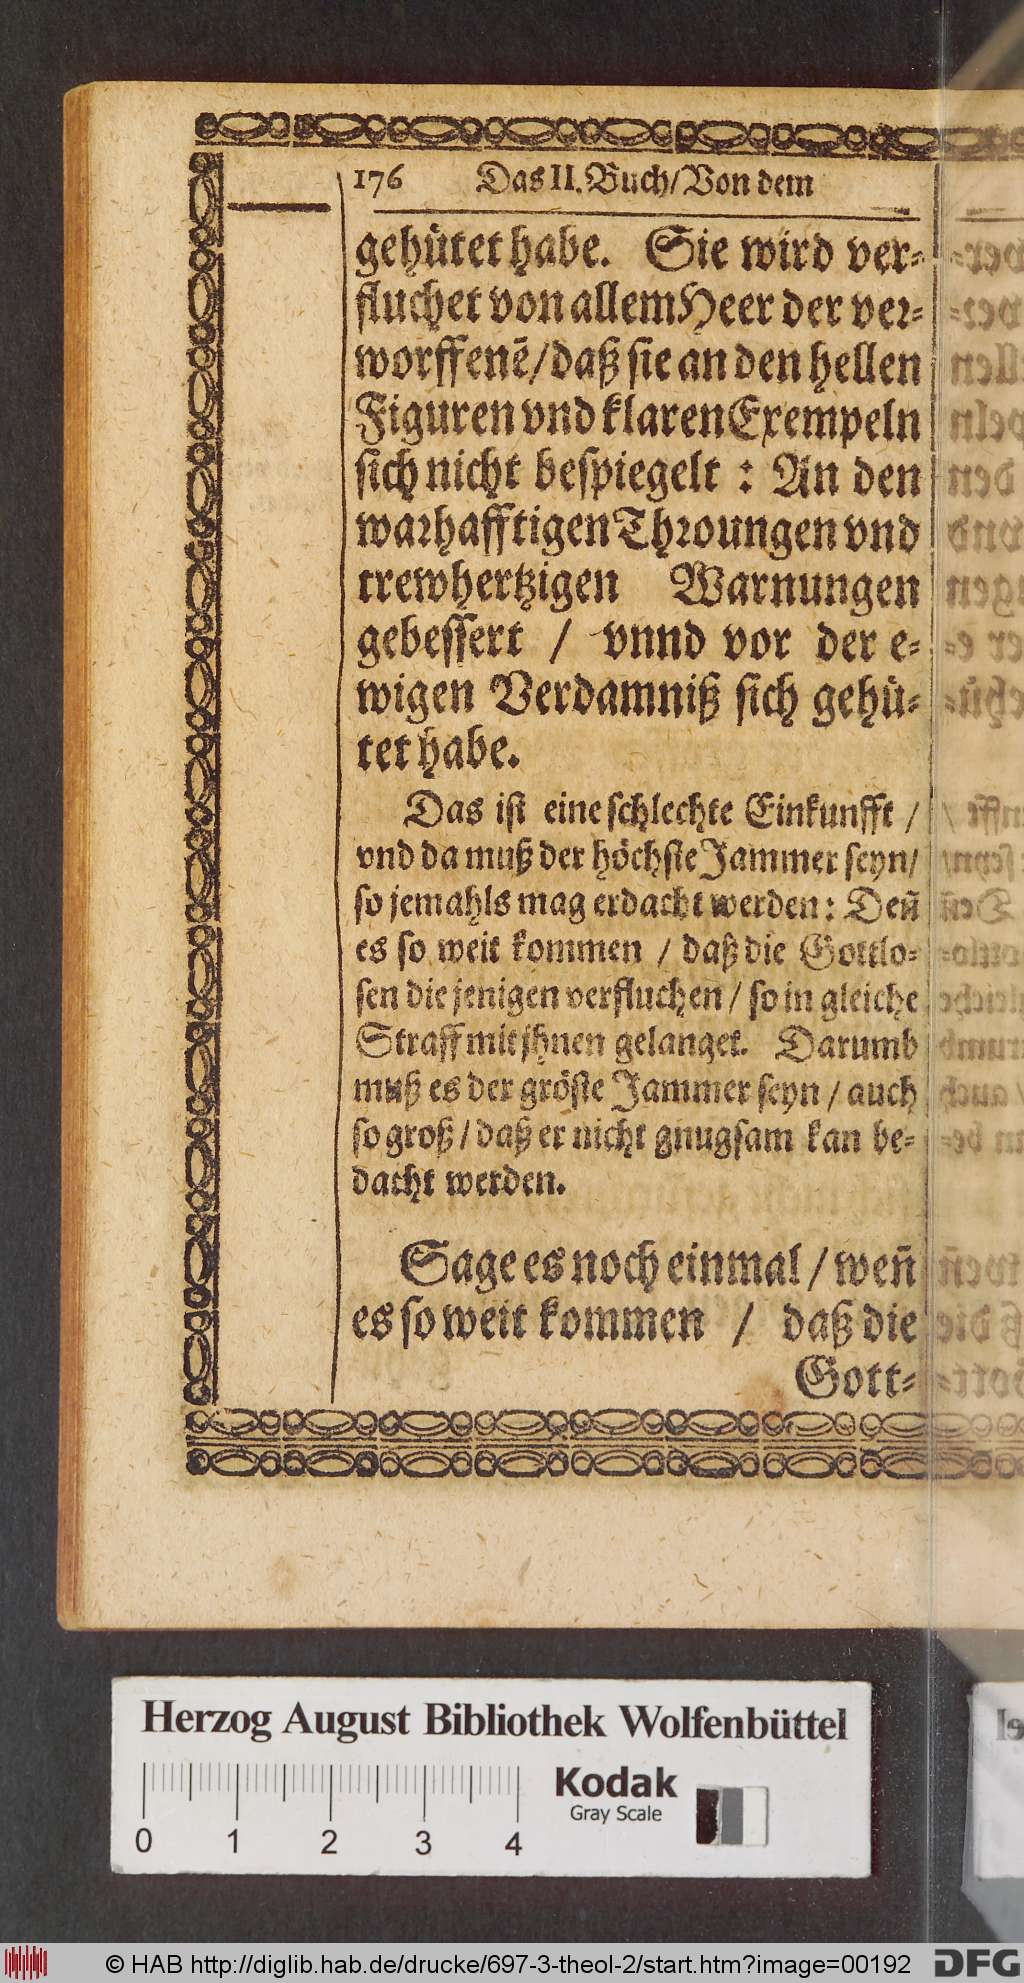 176 Das II. Buch/Von dem
gehütet habe. Sie wird ver-
fluchet von allem Heer der ver-
worffenẽ/daß sie an den hellen
Figuren vnd klaren Exempeln
sich nicht bespiegelt : An den
warhafftigen Throungen vnd
trewhertzigen Warnungen
gebessert / vnnd vor der e-
wigen Verdamniß sich gehü-
tet habe.
Das ist eine schlechte Einkunfft /
vnd da muß der höchste Jammer seyn/
so jemahls mag erdacht werden: Deñ
es so weit kommen / daß die Gottlo-
sen die jenigen verfluchen / so in gleiche
Straff mit jhnen gelanget. Darumb
muß es der gröste Jammer seyn / auch
so groß / daß er nicht gnugsam kan be-
dacht werden.
Sage es noch einmal / weñ
es so weit kommen / daß die
Gott-
Herzog August Bibliothek Wolfenbüttel
Kodak
Gray Scale
0 1 2 3 4
© HAB http://diglib.hab.de/drucke/697-3-theol-2/start.htm?image=00192 DFG